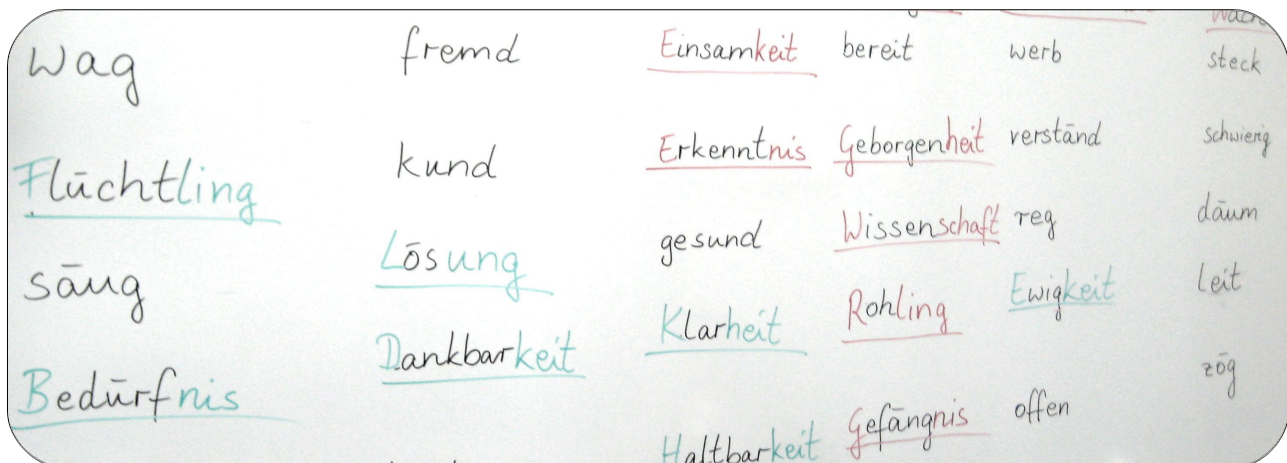 wag
Flüchtling
säug
Bedürfnis
fremd
kund
Lösung
Dankbarkeit
Einsamkeit
Erkenntnis
gesund
Klarheit
Haltbarkeit
bereit
Geborgenheit
Wissenschaft
Rohling
Gefängnis
werb
verständ
reg
Ewigkeit
offen
steck
schwierig
däum
leit
zög